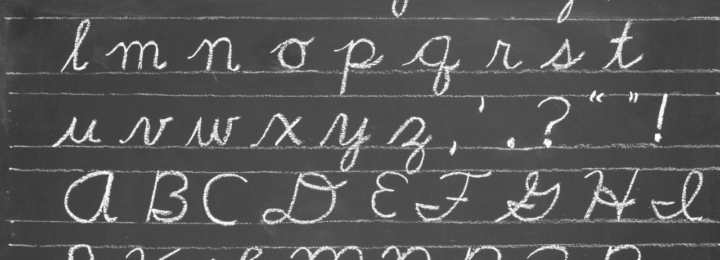 l m n o p q r s t
u v w x y z , ' . ? “ ” !
A B C D E F G H I